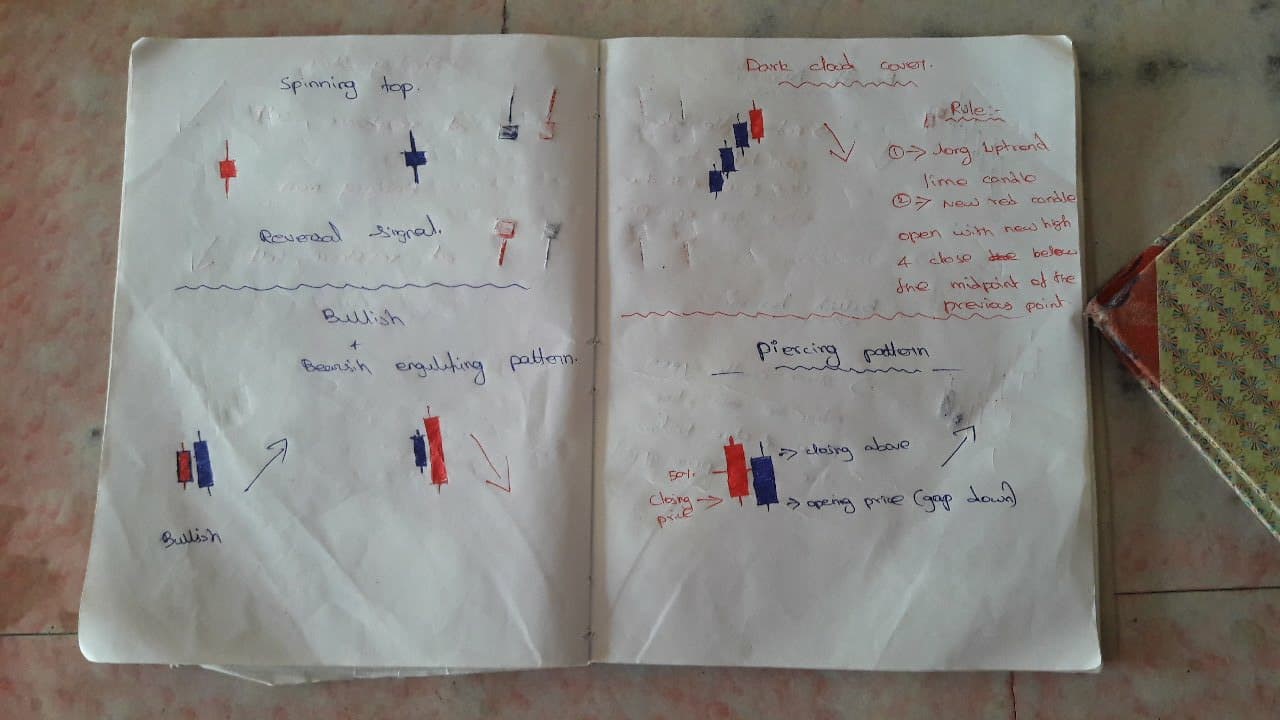 Spinning top.
Reversal Signal.
Bullish
+
Bearish engulfing pattern.
Bullish
Dark cloud cover.
Rule:-
① → long uptrend
lime candle
② → New red candle
open with new high
& close below
the midpoint of the
previous point
Piercing pattern
→ closing above
50%
Closing →
price
→ opening price (gap down)